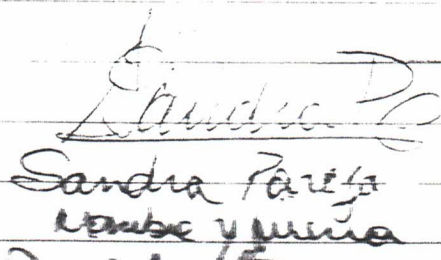 Sandra P
Sandra Pareja
Nombre y firma